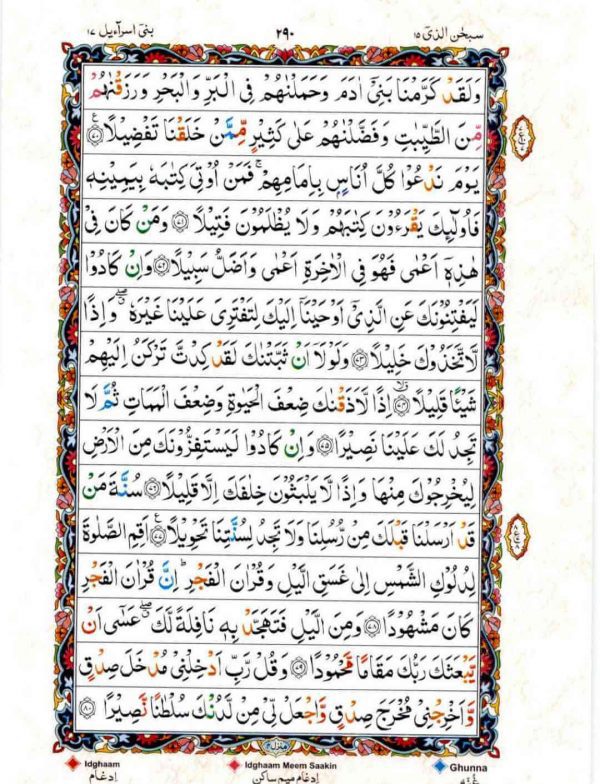 سبحٰن الذیۤ ۱۵
۲۹۰
بنیۤ اسرآءیل ۱۷
وَلَقَدْ كَرَّمْنَا بَنِیْۤ اٰدَمَ وَحَمَلْنٰهُمْ فِی الْبَرِّ وَالْبَحْرِ وَرَزَقْنٰهُمْ
مِّنَ الطَّیِّبٰتِ وَفَضَّلْنٰهُمْ عَلٰی كَثِیْرٍ مِّمَّنْ خَلَقْنَا تَفْضِیْلًا ﴿۷۰﴾
یَوْمَ نَدْعُوْا كُلَّ اُنَاسٍۭ بِاِمَامِهِمْ ۚ فَمَنْ اُوْتِیَ كِتٰبَهٗ بِیَمِیْنِهٖ
فَاُولٰٓىِٕكَ یَقْرَءُوْنَ كِتٰبَهُمْ وَلَا یُظْلَمُوْنَ فَتِیْلًا ﴿۷۱﴾ وَمَنْ كَانَ فِیْ
هٰذِهٖۤ اَعْمٰی فَهُوَ فِی الْاٰخِرَةِ اَعْمٰی وَاَضَلُّ سَبِیْلًا ﴿۷۲﴾ وَاِنْ كَادُوْا
لَیَفْتِنُوْنَكَ عَنِ الَّذِیْۤ اَوْحَیْنَاۤ اِلَیْكَ لِتَفْتَرِیَ عَلَیْنَا غَیْرَهٗ ۖۗ وَاِذًا
لَّاتَّخَذُوْكَ خَلِیْلًا ﴿۷۳﴾ وَلَوْلَاۤ اَنْ ثَبَّتْنٰكَ لَقَدْ كِدْتَّ تَرْكَنُ اِلَیْهِمْ
شَیْـًٔا قَلِیْلًا ﴿۷۴﴾ اِذًا لَّاَذَقْنٰكَ ضِعْفَ الْحَیٰوةِ وَضِعْفَ الْمَمَاتِ ثُمَّ لَا
تَجِدُ لَكَ عَلَیْنَا نَصِیْرًا ﴿۷۵﴾ وَاِنْ كَادُوْا لَیَسْتَفِزُّوْنَكَ مِنَ الْاَرْضِ
لِیُخْرِجُوْكَ مِنْهَا وَاِذًا لَّا یَلْبَثُوْنَ خِلٰفَكَ اِلَّا قَلِیْلًا ﴿۷۶﴾ سُنَّةَ مَنْ
قَدْ اَرْسَلْنَا قَبْلَكَ مِنْ رُّسُلِنَا وَلَا تَجِدُ لِسُنَّتِنَا تَحْوِیْلًا ﴿۷۷﴾ اَقِمِ الصَّلٰوةَ
لِدُلُوْكِ الشَّمْسِ اِلٰی غَسَقِ الَّیْلِ وَقُرْاٰنَ الْفَجْرِ ؕ اِنَّ قُرْاٰنَ الْفَجْرِ
كَانَ مَشْهُوْدًا ﴿۷۸﴾ وَمِنَ الَّیْلِ فَتَهَجَّدْ بِهٖ نَافِلَةً لَّكَ ۖۗ عَسٰۤی اَنْ
یَّبْعَثَكَ رَبُّكَ مَقَامًا مَّحْمُوْدًا ﴿۷۹﴾ وَقُلْ رَّبِّ اَدْخِلْنِیْ مُدْخَلَ صِدْقٍ
وَّاَخْرِجْنِیْ مُخْرَجَ صِدْقٍ وَّاجْعَلْ لِّیْ مِنْ لَّدُنْكَ سُلْطٰنًا نَّصِیْرًا ﴿۸۰﴾
منزل ۴
Idghaam
Idghaam Meem Saakin
Ghunna
اِدغام
اِدغام میم ساکن
غنّه